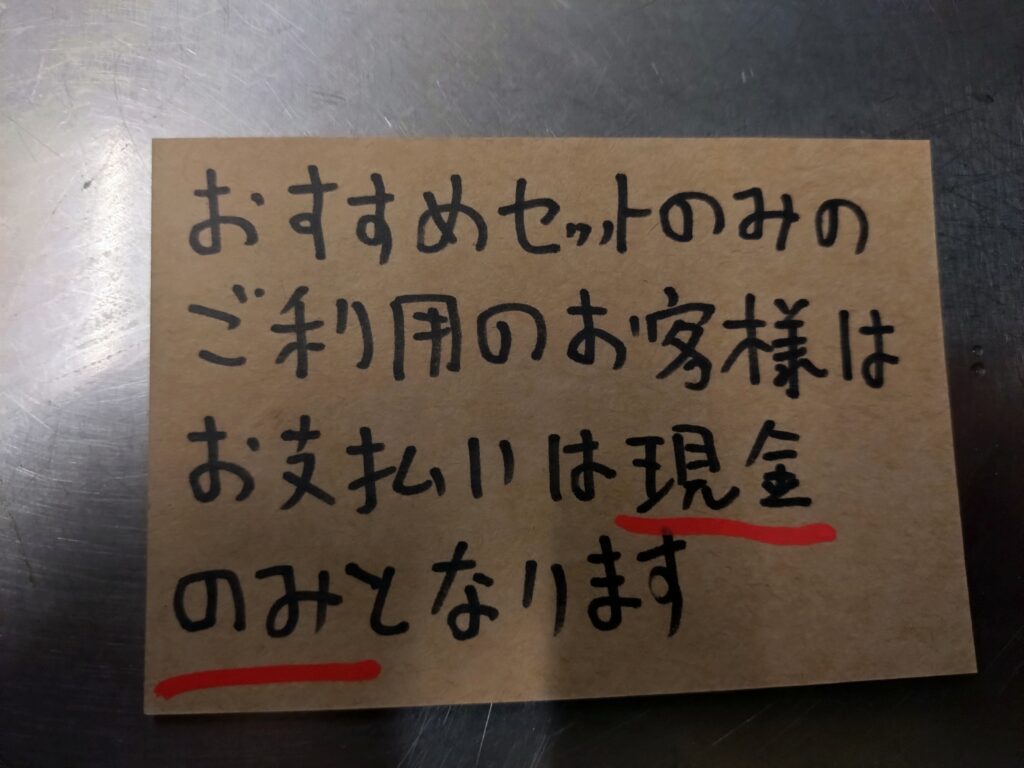 おすすめセットのみの
ご利用のお客様は
お支払いは現金
のみとなります